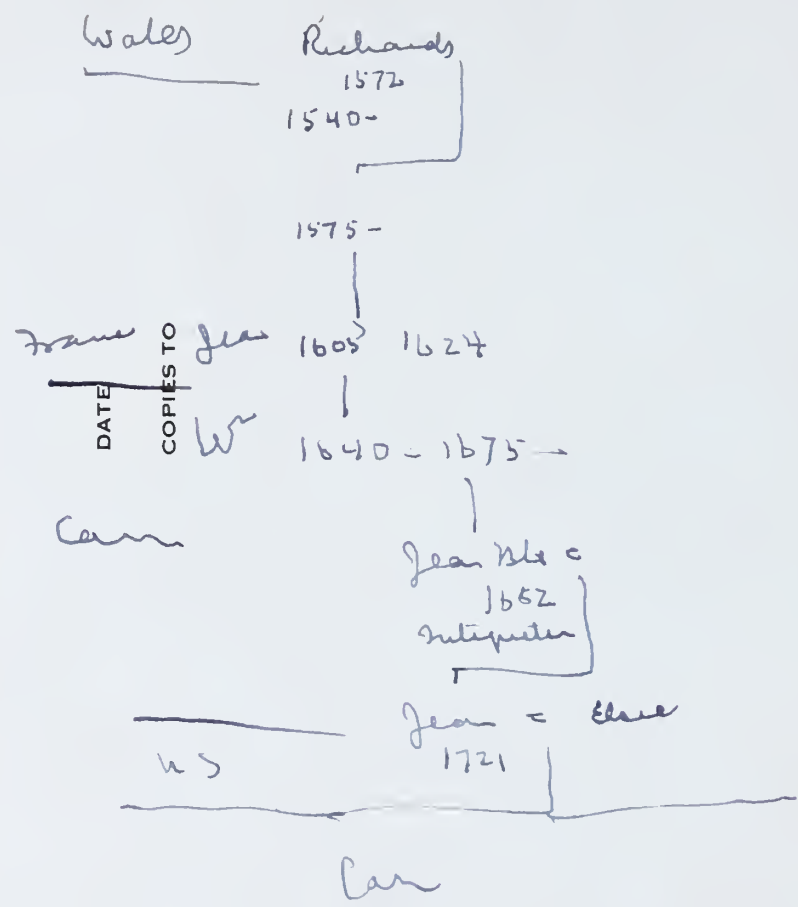 Wales Richards
1572
1540-
1575-
France Jean 1605 1624
DATE
COPIES TO
Wm 1640 - 1675 -
Can
Jean Bte =
1652
Jean = Elsie
1721
US
Can